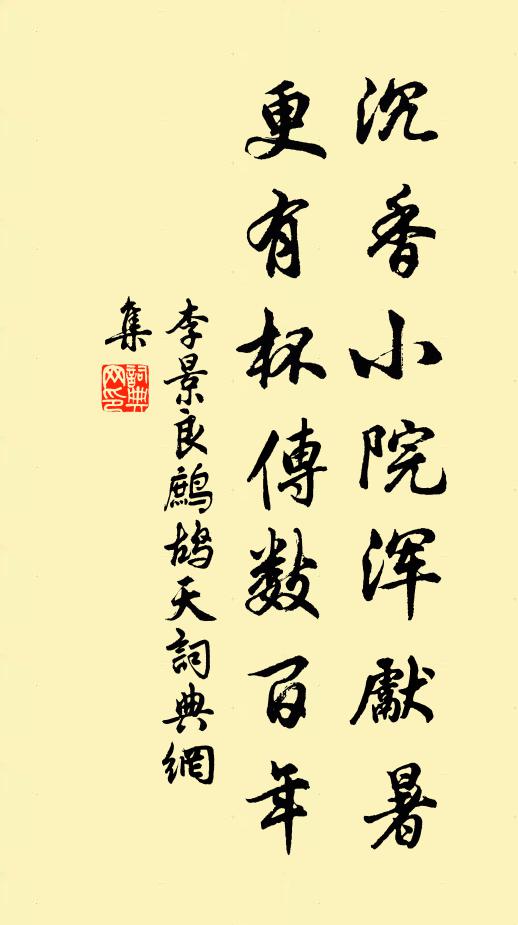 沉香小院浑獻暑
更有杯傳數百年
李景良鷓鴣天詞典網
集
詞典
网印